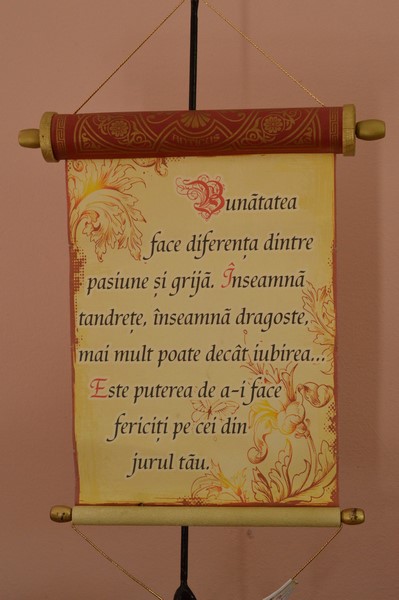 Bunãtatea
face diferența dintre
pasiune și grijã. Înseamnã
tandrețe, înseamnã dragoste,
mai mult poate decât iubirea...
Este puterea de a-i face
fericiți pe cei din
jurul tãu.